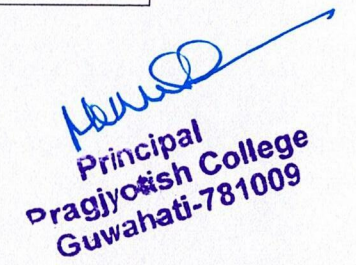 Principal
Pragjyotish College
Guwahati-781009